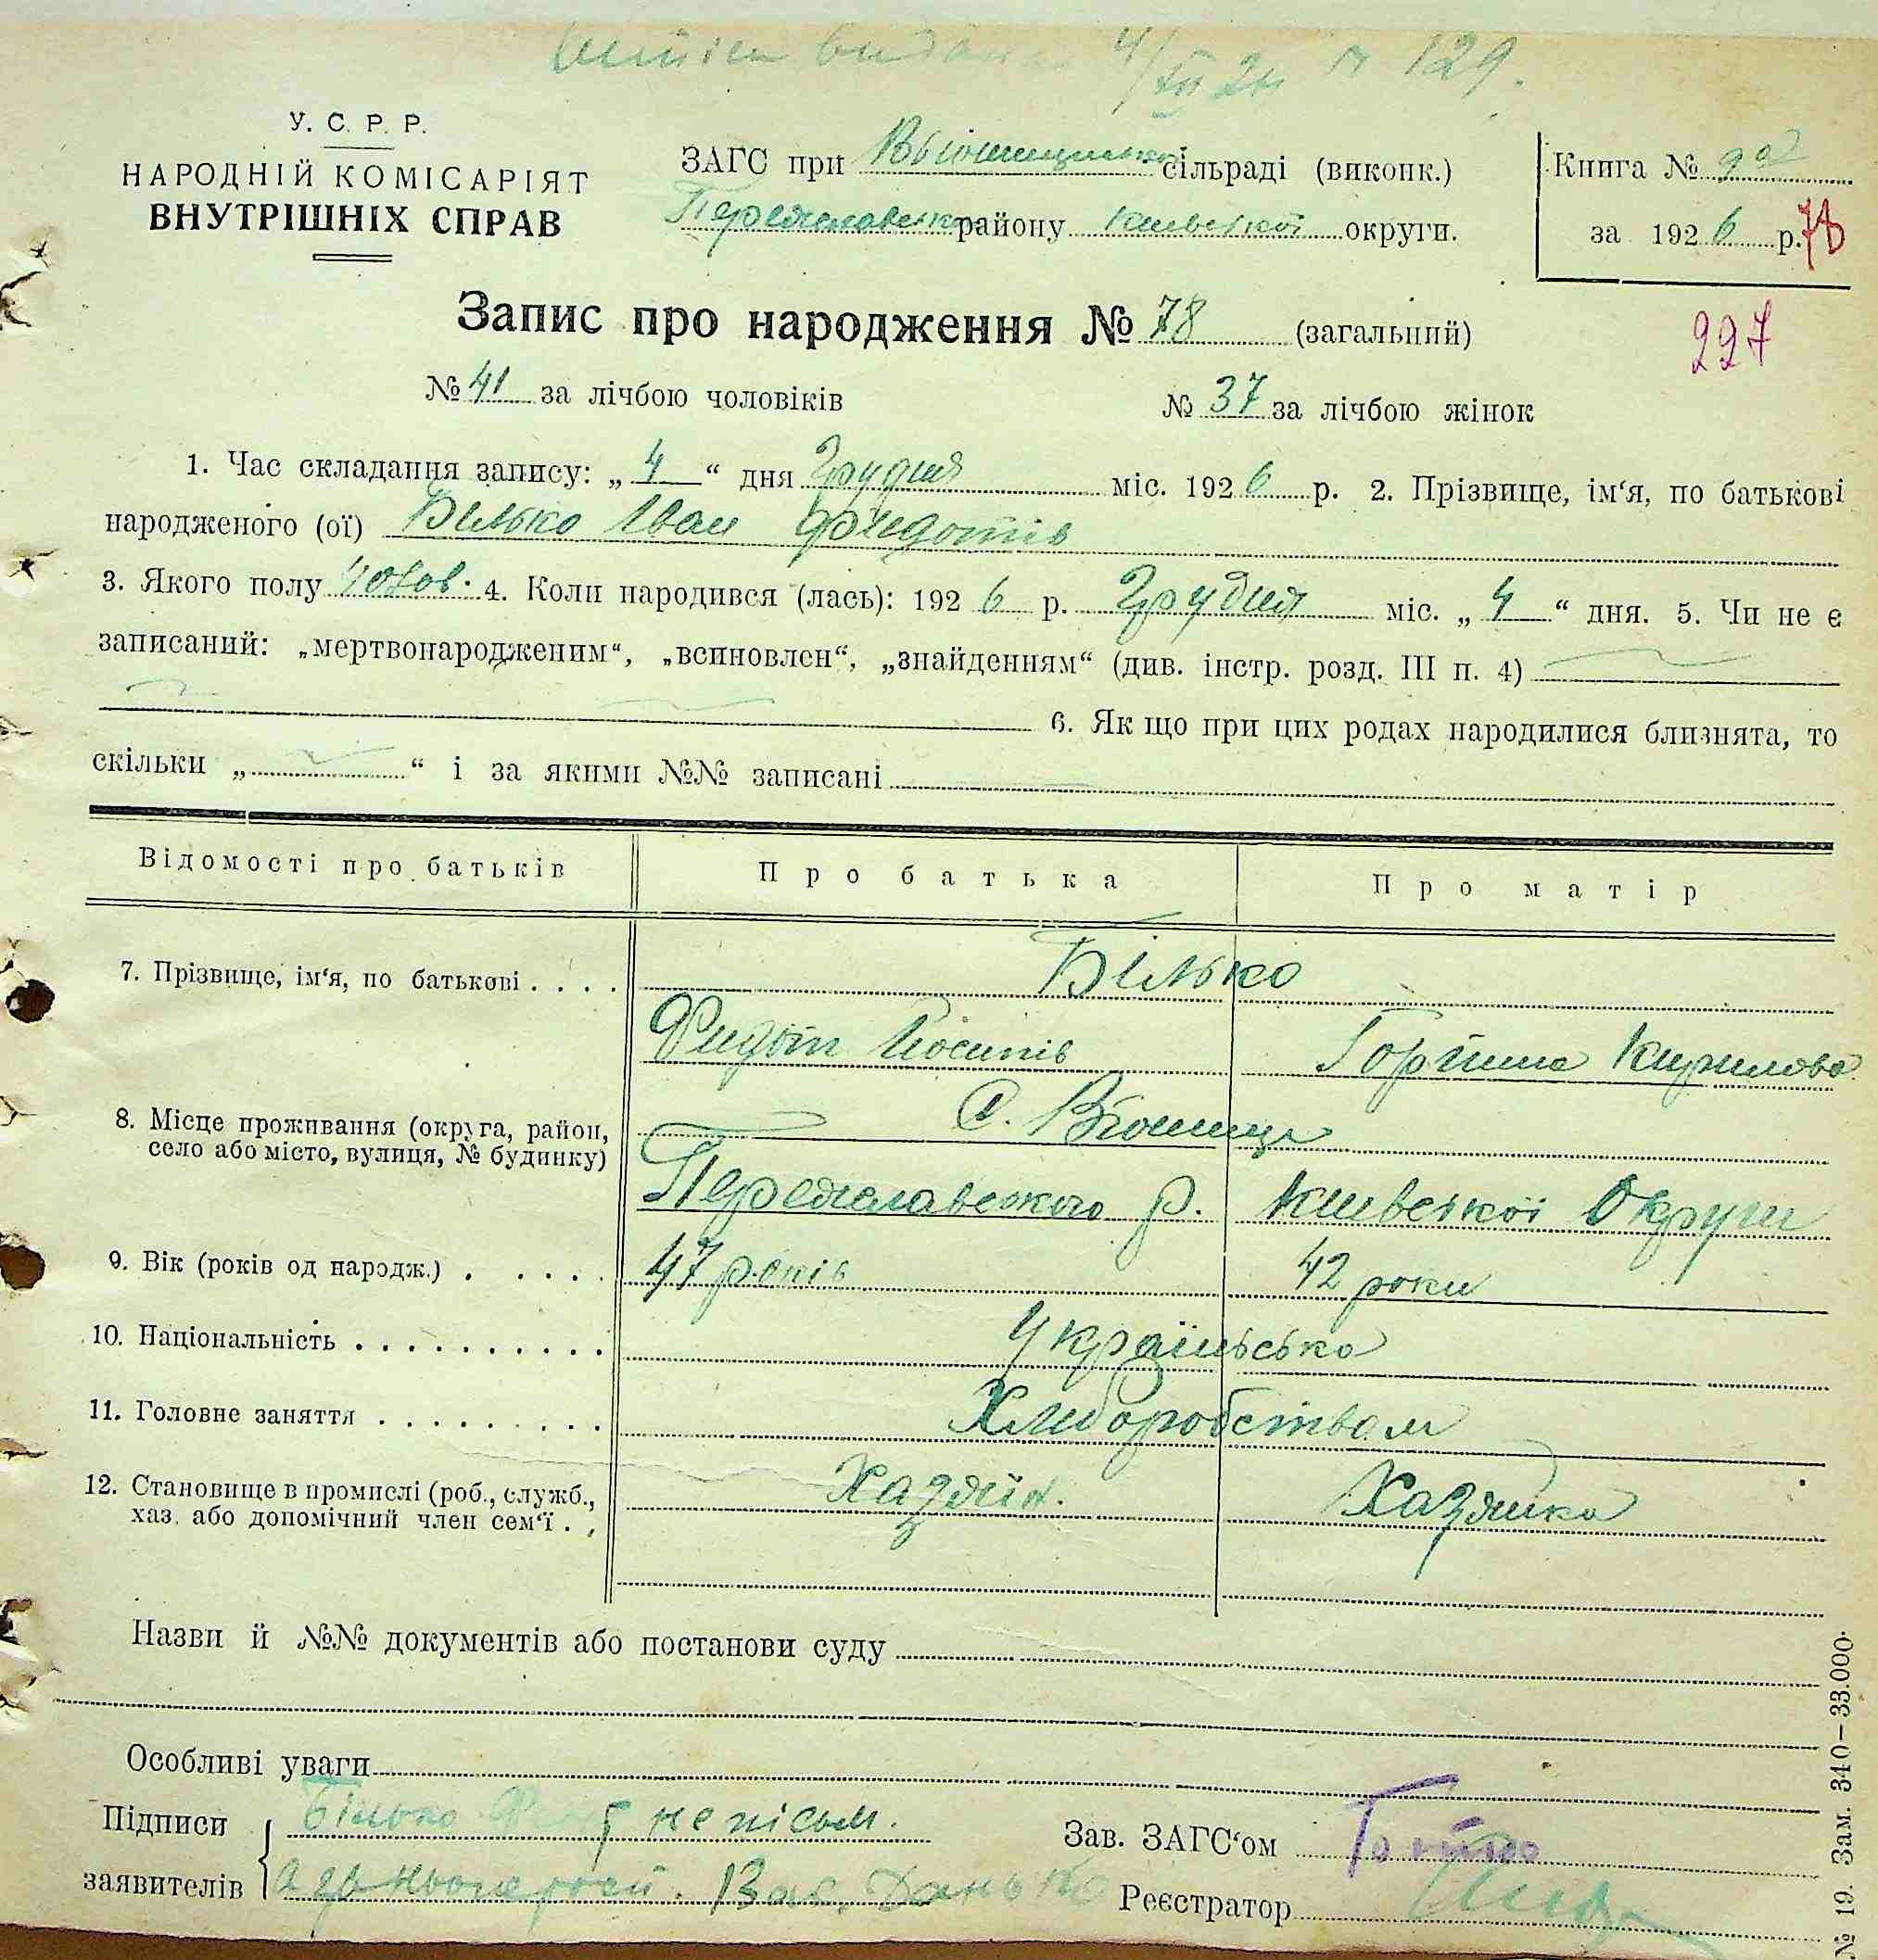 4/XII 26 № 129.
У. С. Р. Р.
НАРОДНІЙ КОМІСАРІЯТ
ВНУТРІШНІХ СПРАВ
ЗАГС при сільраді (виконк.)
району Київської округи.
Книга №
за 1926 р. 78
Запис про народження № 78 (загальний)
227
№ 41 за лічбою чоловіків № 37 за лічбою жінок
1. Час складання запису: „4“ дня Грудня міс. 1926 р. 2. Прізвище, ім‘я, по батькові
народженого (ої) Білько Іван Фидотів
3. Якого полу чолов. 4. Коли народився (лась): 1926 р. Грудня міс. „4“ дня. 5. Чи не є
записаний: „мертвонародженим“, „всиновлен“, „знайденням“ (див. інстр. розд. III п. 4)
6. Як що при цих родах народилися близнята, то
скільки „ “ і за якими №№ записані
Відомості про батьків Про батька Про матір
7. Прізвище, ім‘я, по батькові . . . . Білько
Фидот Йосипів Горпина Кирилова
8. Місце проживання (округа, район, село або місто, вулиця, № будинку) С. Вюнище
Переяславского р. Київської Округи
9. Вік (років од народж.) . . . . . 47 років 42 роки
10. Національність . . . . . . . . . . Українська
11. Головне заняття . . . . . . . . . Хліборобством
12. Становище в промислі (роб., служб., хаз. або допомічний член сем‘ї . . Хазяїн. Хазяйка
Назви й №№ документів або постанови суду
Особливі уваги
Підписи Білько не пісьм.
заявителів Вас. Данько
Зав. ЗАГС‘ом
Реєстратор
№ 19. Зам. 340–33.000.